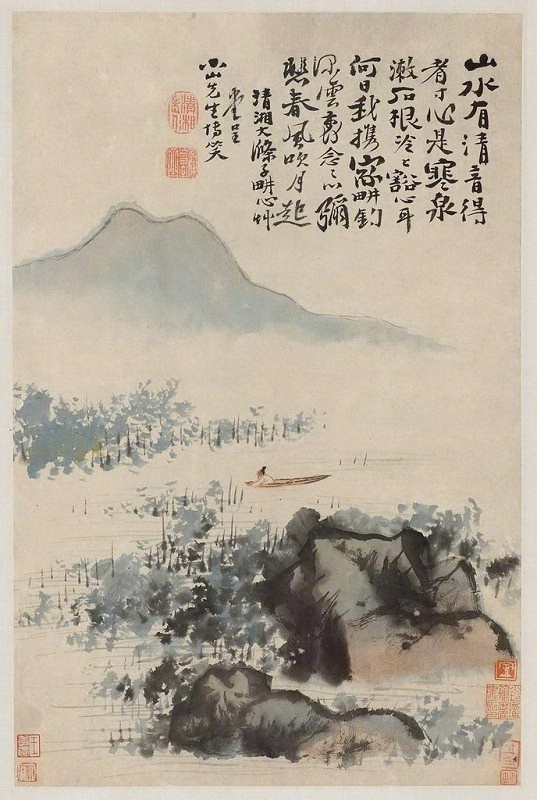 山水有清音得
者寸心是寒泉
漱石根冷々豁心耳
何日我携家畊釣
深雲裏念之心彌
慇春風吹月起
清湘大滌子畊心艸
堂呈
小山先生博笑
清湘老人